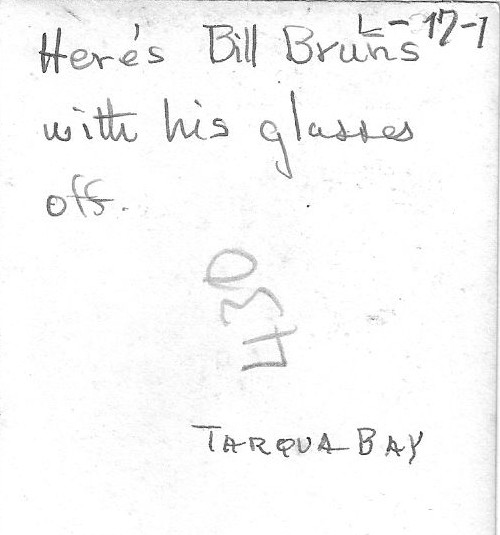 L-17-1
Here's Bill Bruns
with his glasses
off.
430
TARQUA BAY